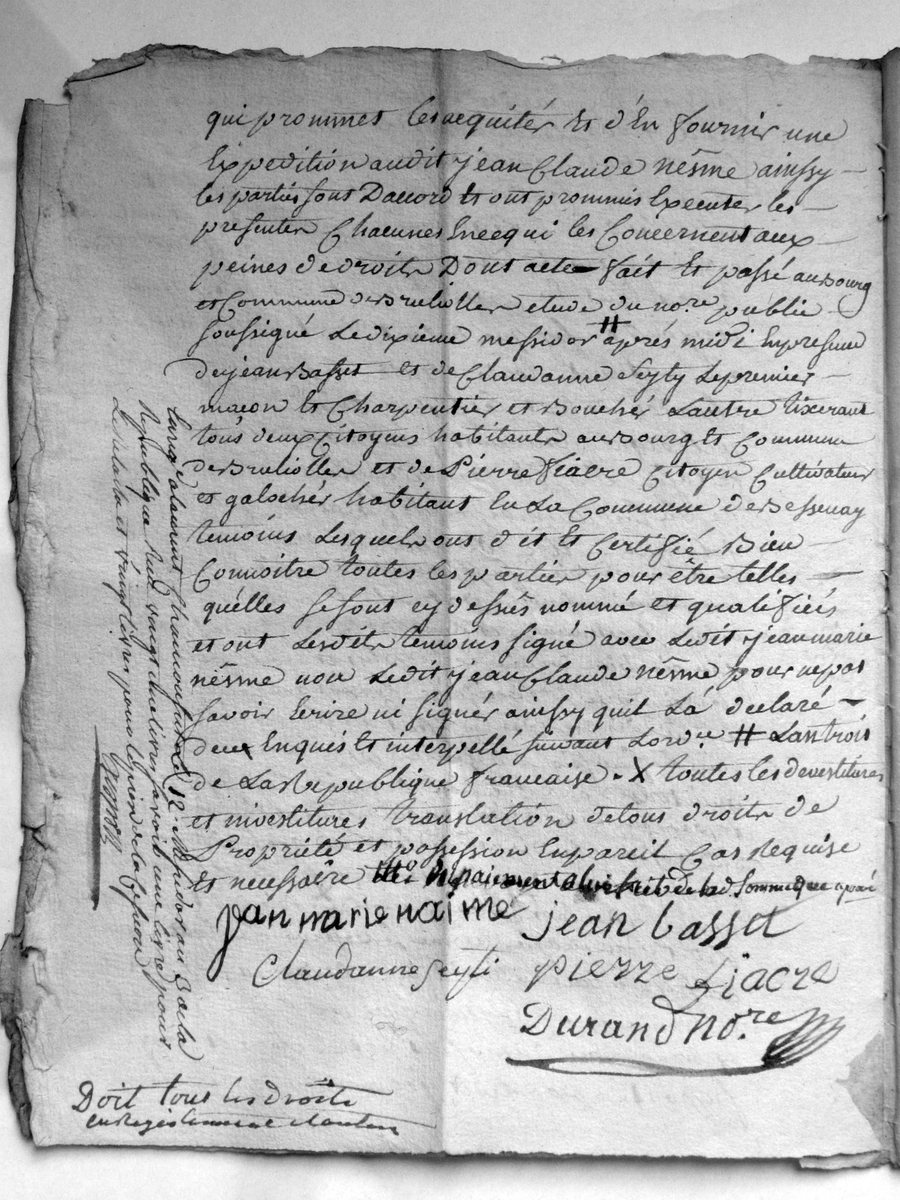 qui prommet les aequiter et d'En fournir une
Expedition audit jean Claude nésme ainssy
les parties sont Daccord Et ont prommis Executer les
presentes Chacunes En ce qui les Concernent aux
peines de droits Dont acte fait Et passé au Bourg
et Commune de Brullolles etude du no.re public
soussigné Le dixieme messidor # aprés midi En presence
de jean Basset et de Claudanne Seyty Le premier
macon Et Charpentier et Bouchér Lautre tixerant
tous deux Citoyens habitants au Bourg Et Commune
de Brullolles et de Pierre fiacre Citoyen Cultivateur
et galochér habitant En La Commune de Bessenay
temoins Lesquels ont dit Et Certifié Bien
Connoitre toutes les parties pour être telles
quélles se sont cy dessus nommé et qualifiées
et ont Lesdits temoins signé avec Ledit jean marie
nésme non Ledit jean Claude nésme pour ne pas
savoir Ecrire ni signér ainssy quil La déclaré
de ux Enquis Et interpellé suivant L ordce # Lan trois
de La Republique francaise . X toutes les devestitures
et investitures translation de tous droits de
Propriété et possession En pareil Cas Requise
Et necessaire du paiement de la d. Somme
jean marie naime jean basset
Claudanne Seyti pierre fiacre
Durand No.re
Doit tous les droits
enregistrement
12 Messidor an 3 de la
Republique Reçu vingt une livre savoir une livre pour
et vingt livre pour